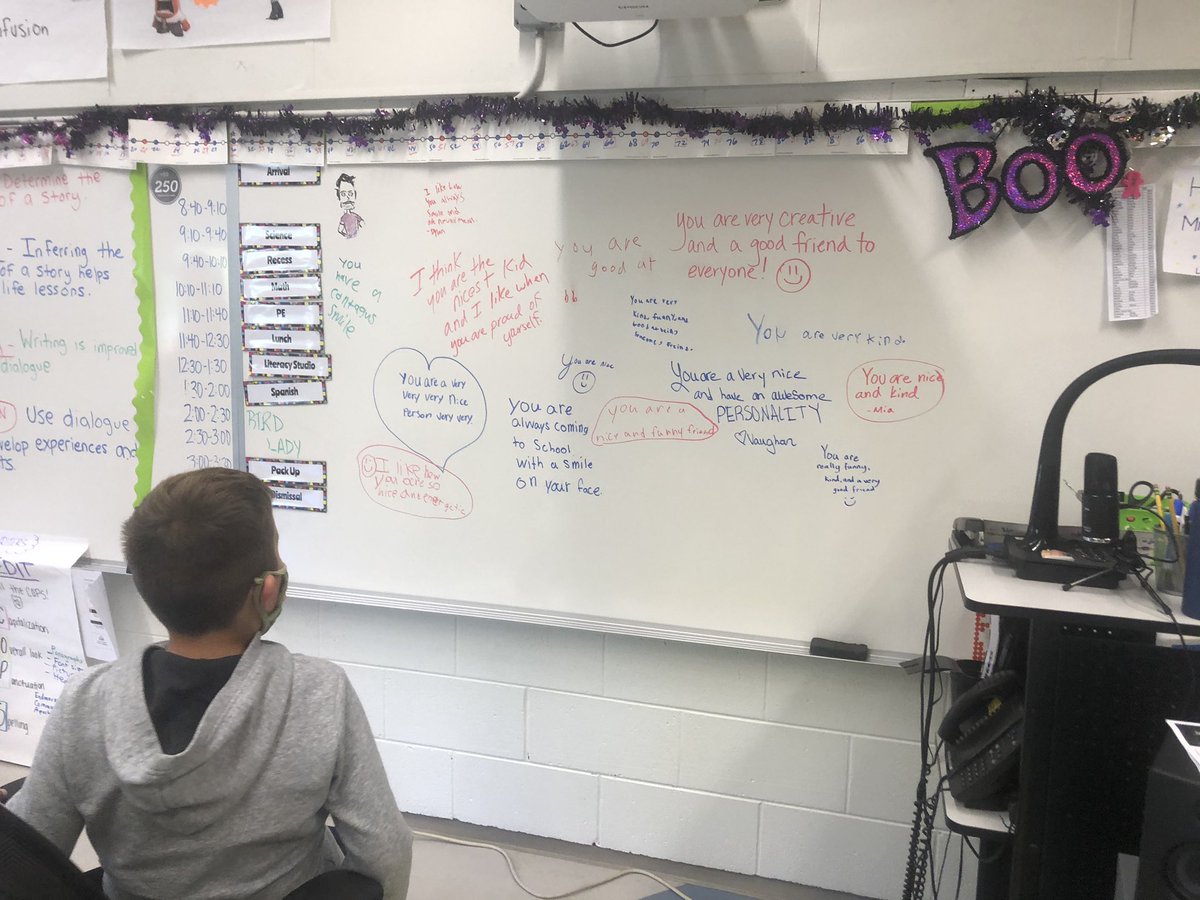 nfusion
Determine the
of a story.
- Inferring the
of a story helps
life lessons.
- Writing is improved
dialogue
Use dialogue
velop experiences and
ts.
EDIT
the COPS!
Capitalization
Overall look
Punctuation
Spelling
250
8:40-9:10
9:10-9:40
9:40-10:10
10:10-11:10
11:10-11:40
11:40-12:30
12:30-1:30
1:30-2:00
2:00-2:30
2:30-3:00
Arrival
Science
Recess
Math
PE
Lunch
Literacy Studio
Spanish
BIRD
LADY
Pack Up
Dismissal
I like how
you always
smile and
You
have a
contagus
smile
I think
you are the
nicest kid
and I like when
you are proud of
yourself.
you are
good at
you are very creative
and a good friend to
everyone!
You are very
kind, funny, and
You are very kind.
You are a very
very very nice
person very very.
I like how
you are so
nice and energetic
You are nice
You are
always coming
to School
with a smile
on your face.
you are a
nice and funny friend
You are a very nice
and have an awesome
PERSONALITY
♡Vaughan
You are nice
and kind
-Mia
You are
really funny,
kind, and a very
good friend
BOO